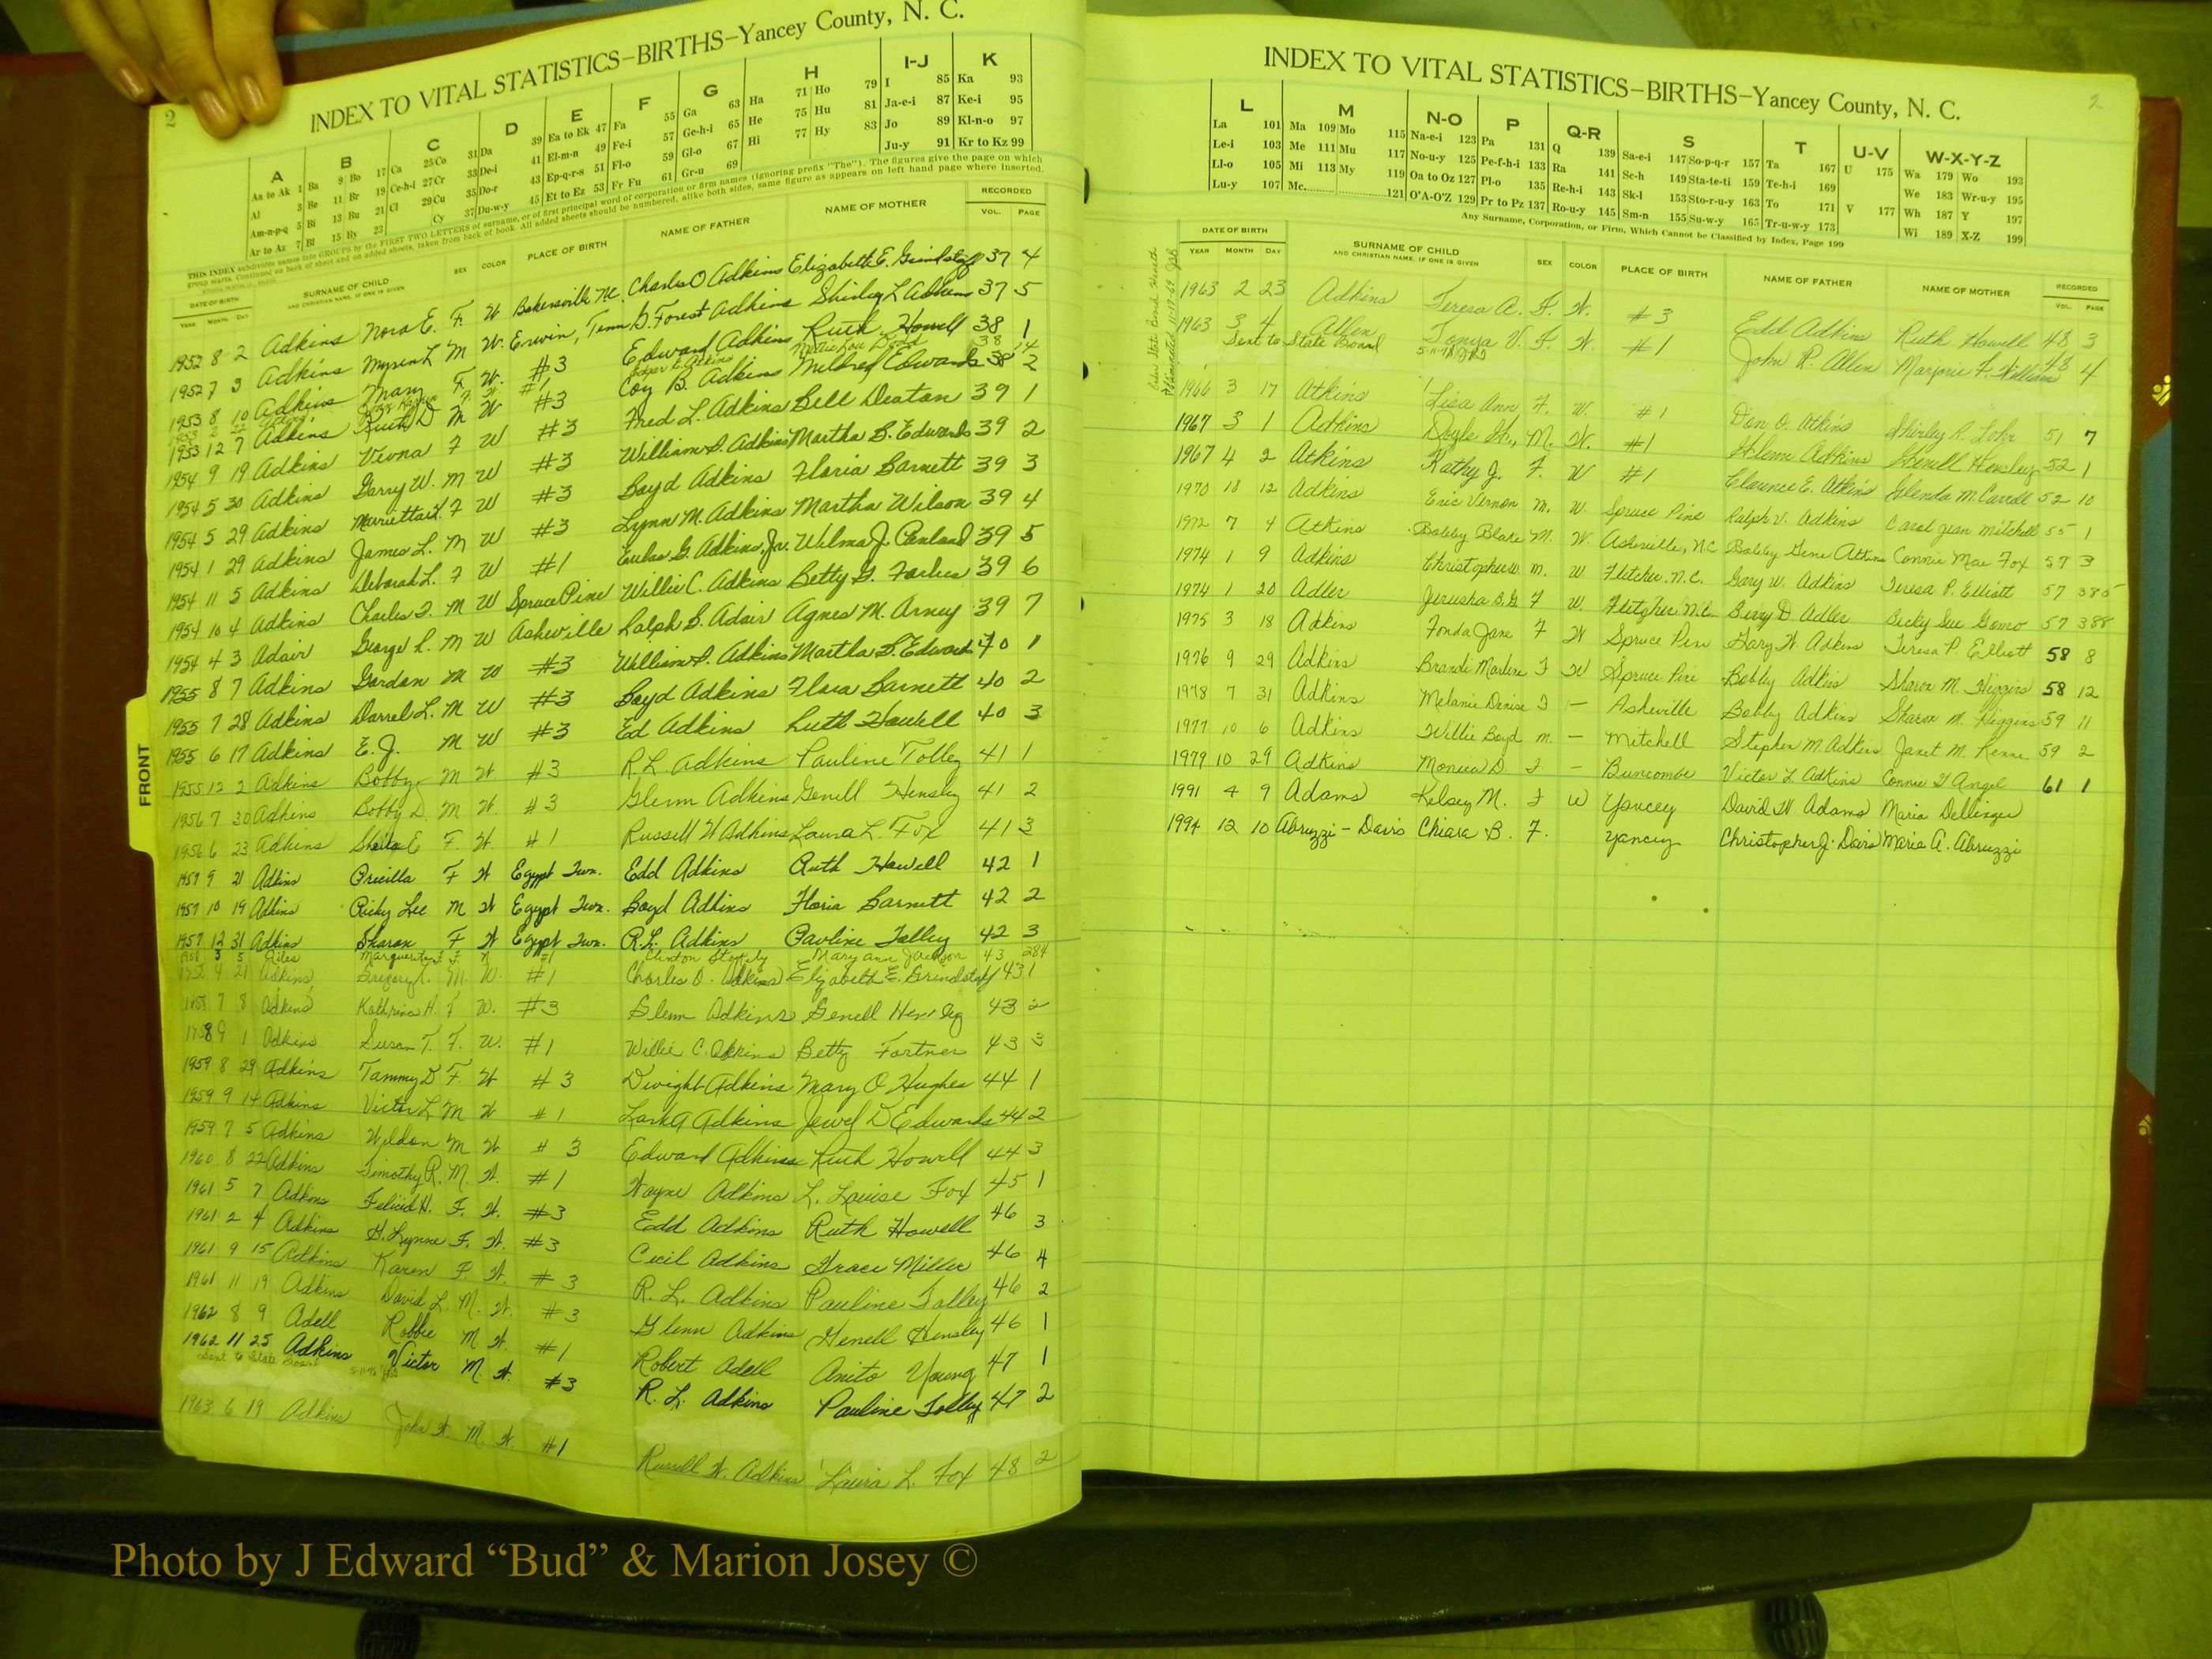 2
INDEX TO VITAL STATISTICS–BIRTHS–Yancey County, N. C.
A B C D E F G H I-J K
Aa to Ak 1 Ba 9 Bo 17 Ca 25 Co 31 Da 39 Ea to Ek 47 Fa 55 Ga 63 Ha 71 Ho 79 I 85 Ka 93
Al 3 Be 11 Br 19 Ce-h-i 27 Cr 33 De-i 41 El-m-n 49 Fe-i 57 Ge-h-i 65 He 75 Hu 81 Ja-e-i 87 Ke-i 95
Am-n-p-q 5 Bi 13 Bu 21 Cl 29 Cu 35 Do-r 43 Ep-q-r-s 51 Fl-o 59 Gl-o 67 Hi 77 Hy 83 Jo 89 Kl-n-o 97
Ar to Az 7 Bl 15 By 23 Cy 37 Du-w-y 45 Et to Ez 53 Fr Fu 61 Gr-u 69 Ju-y 91 Kr to Kz 99
THIS INDEX subdivides names into GROUPS by the FIRST TWO LETTERS of surname, or of first principal word of corporation or firm names (ignoring prefix "The"). The figures give the page on which
group starts. Continued on back of sheet and on added sheets, taken from back of book. All added sheets should be numbered, alike both sides, same figure as appears on left hand page where inserted.
DATE OF BIRTH SURNAME OF CHILD SEX COLOR PLACE OF BIRTH NAME OF FATHER NAME OF MOTHER RECORDED
YEAR MONTH DAY AND CHRISTIAN NAME, IF ONE IS GIVEN VOL. PAGE
1952 8 2 Adkins Nora E. F. W Bakersville N.C. Charles O Adkins Elizabeth E. Grindstaff 37 4
1952 7 3 Adkins Myren L M W. Erwin, Tenn D. Forest Adkins Shirley L Adkins 37 5
1953 8 10 Adkins Mary F. W. #3 Edward Adkins Ruth Howell 38 1
1953 12 7 Adkins Keith D M W #3 Coy B. Adkins Mildred Edwards 38 2
1954 9 19 Adkins Vivna F W #3 Fred L. Adkins Bell Deaton 39 1
1954 5 30 Adkins Garry W. M W #3 William S. Adkins Martha B. Edwards 39 2
1954 5 29 Adkins Marietta F W #3 Boyd Adkins Floria Barnett 39 3
1954 1 29 Adkins James L. M W #3 Lynn M. Adkins Martha Wilson 39 4
1954 11 5 Adkins Deborah L. F W #1 Eulas G. Adkins, Jr. Wilma J. Penland 39 5
1954 10 4 Adkins Charles F. M W Spruce Pine Willie C. Adkins Betty G. Forbes 39 6
1954 4 3 Adair George L. M W Asheville Ralph S. Adair Agnes M. Arney 39 7
1955 8 7 Adkins Gordon M W #3 William S. Adkins Martha B. Edwards 40 1
1955 7 28 Adkins Darrel L. M W #3 Boyd Adkins Flora Barnett 40 2
1955 6 17 Adkins E. J. M W #3 Ed Adkins Ruth Howell 40 3
1955 12 2 Adkins Bobby M W #3 R. L. Adkins Pauline Tolley 41 1
1956 7 30 Adkins Bobby D. M W. #3 Glenn Adkins Genell Hensley 41 2
1956 6 23 Adkins Sheila E F. W. #1 Russell W Adkins Laura L Fox 41 3
1957 9 21 Adkins Pricilla F W Egypt Twn. Edd Adkins Ruth Howell 42 1
1957 10 19 Adkins Ricky Lee M W Egypt Twn. Boyd Adkins Floria Barnett 42 2
1957 12 31 Adkins Sharon F W Egypt Twn. R. L. Adkins Pauline Tolley 42 3
1958 3 5 Marguerite F. #1 Clinton Mary Ann Jackson 43 284
1958 4 21 Adkins Gregory M. W. #1 Charles O. Adkins Elizabeth E. Grindstaff 43 1
1958 7 8 Adkins Kathrine H. F W. #3 Glenn Adkins Genell Hensley 43 2
1958 9 1 Adkins Susan T. F. W. #1 Willie C. Adkins Betty Fortner 43 3
1959 8 29 Adkins Tammy D F. W #3 Dwight Adkins Mary O Hughes 44 1
1959 9 14 Adkins Victor L M W #1 Lark A Adkins Jewel D Edwards 44 2
1959 7 5 Adkins Weldon M W #3 Edward Adkins Ruth Howell 44 3
1960 8 22 Adkins Timothy R. M. W. #1 Wayne Adkins L. Louise Fox 45 1
1961 5 7 Adkins Felicid H. F. W. #3 Edd Adkins Ruth Howell 46 3
1961 2 4 Adkins H. Lynne F. W. #3 Cecil Adkins Grace Miller 46 4
1961 9 15 Adkins Karen F. W. #3 R. L. Adkins Pauline Tolley 46 2
1961 11 19 Adkins David L. M. W. #3 Glenn Adkins Genell Hensley 46 1
1962 8 9 Adell Robbie M W. #1 Robert Adell Anita Young 47 1
1962 11 25 Adkins Victor M. W. #3 R. L. Adkins Pauline Tolley 47 2
Sent to State Board
1963 6 19 Adkins John W M W. #1 Russell W. Adkins Laura L. Fox 48 2
FRONT
2
INDEX TO VITAL STATISTICS–BIRTHS–Yancey County, N. C.
L M N-O P Q-R S T U-V W-X-Y-Z
La 101 Ma 109 Mo 115 Na-e-i 123 Pa 131 Q 139 Sa-e-i 147 So-p-q-r 157 Ta 167 U 175 Wa 179 Wo 193
Le-i 103 Me 111 Mu 117 No-u-y 125 Pe-f-h-i 133 Ra 141 Sc-h 149 Sta-te-ti 159 Te-h-i 169 We 183 Wr-u-y 195
Ll-o 105 Mi 113 My 119 Oa to Oz 127 Pl-o 135 Re-h-i 143 Sk-l 153 Sto-r-u-y 163 To 171 V 177 Wh 187 Y 197
Lu-y 107 Mc 121 O'A-O'Z 129 Pr to Pz 137 Ro-u-y 145 Sm-n 155 Su-w-y 165 Tr-u-w-y 173 Wi 189 X-Z 199
Any Surname, Corporation, or Firm, Which Cannot be Classified by Index, Page 199
DATE OF BIRTH SURNAME OF CHILD SEX COLOR PLACE OF BIRTH NAME OF FATHER NAME OF MOTHER RECORDED
YEAR MONTH DAY AND CHRISTIAN NAME, IF ONE IS GIVEN VOL. PAGE
1963 2 23 Adkins Teresa A. F. W. #3 Edd Adkins Ruth Howell 48 3
1963 3 4 Allen Tonya V. F. W. #1 John R. Allen Marjorie F. William 48 4
Sent to State Board
1966 3 17 Atkins Lisa Ann F. W. #1 Don O. Atkins Shirley R. Lohr 51 7
1967 3 1 Adkins Doyle W., M. W. #1 Glenn Adkins Genell Hensley 52 1
1967 4 2 Atkins Kathy J. F. W #1 Clarence E. Atkins Glenda M. Carroll 52 10
1970 18 12 Adkins Eric Vernon M. W. Spruce Pine Ralph V. Adkins Carol Jean Mitchell 55 1
1972 7 4 Atkins Bobby Blake M. W. Asheville, NC Bobby Gene Atkins Connie Mae Fox 57 3
1974 1 9 Adkins Christopher W. M. W Fletcher, N.C. Gary W. Adkins Teresa P. Elliott 57 385
1974 1 20 Adler Jerusha B.G. F W. Fletcher N.C. Berry D Adler Becky Sue Gomo 57 388
1975 3 18 Adkins Fonda Jane F W Spruce Pine Gary W. Adkins Teresa P. Elliott 58 8
1976 9 29 Adkins Brandi Marlene F W Spruce Pine Bobby Adkins Sharon M. Higgins 58 12
1978 7 31 Adkins Melanie Denise F – Asheville Bobby Adkins Sharon M. Higgins 59 11
1977 10 6 Adkins Willie Boyd M. – Mitchell Stephen M. Adkins Janet M. 59 2
1979 10 29 Adkins Monica D. F – Buncombe Victor L Adkins Connie Angel 61 1
1991 4 9 Adams Kelsey M. F W Yancey David W Adams Maria Dellinger
1994 12 10 Abruzzi - Davis Chiara B. F. Yancey Christopher J. Davis Maria A. Abruzzi
Photo by J Edward “Bud” & Marion Josey ©